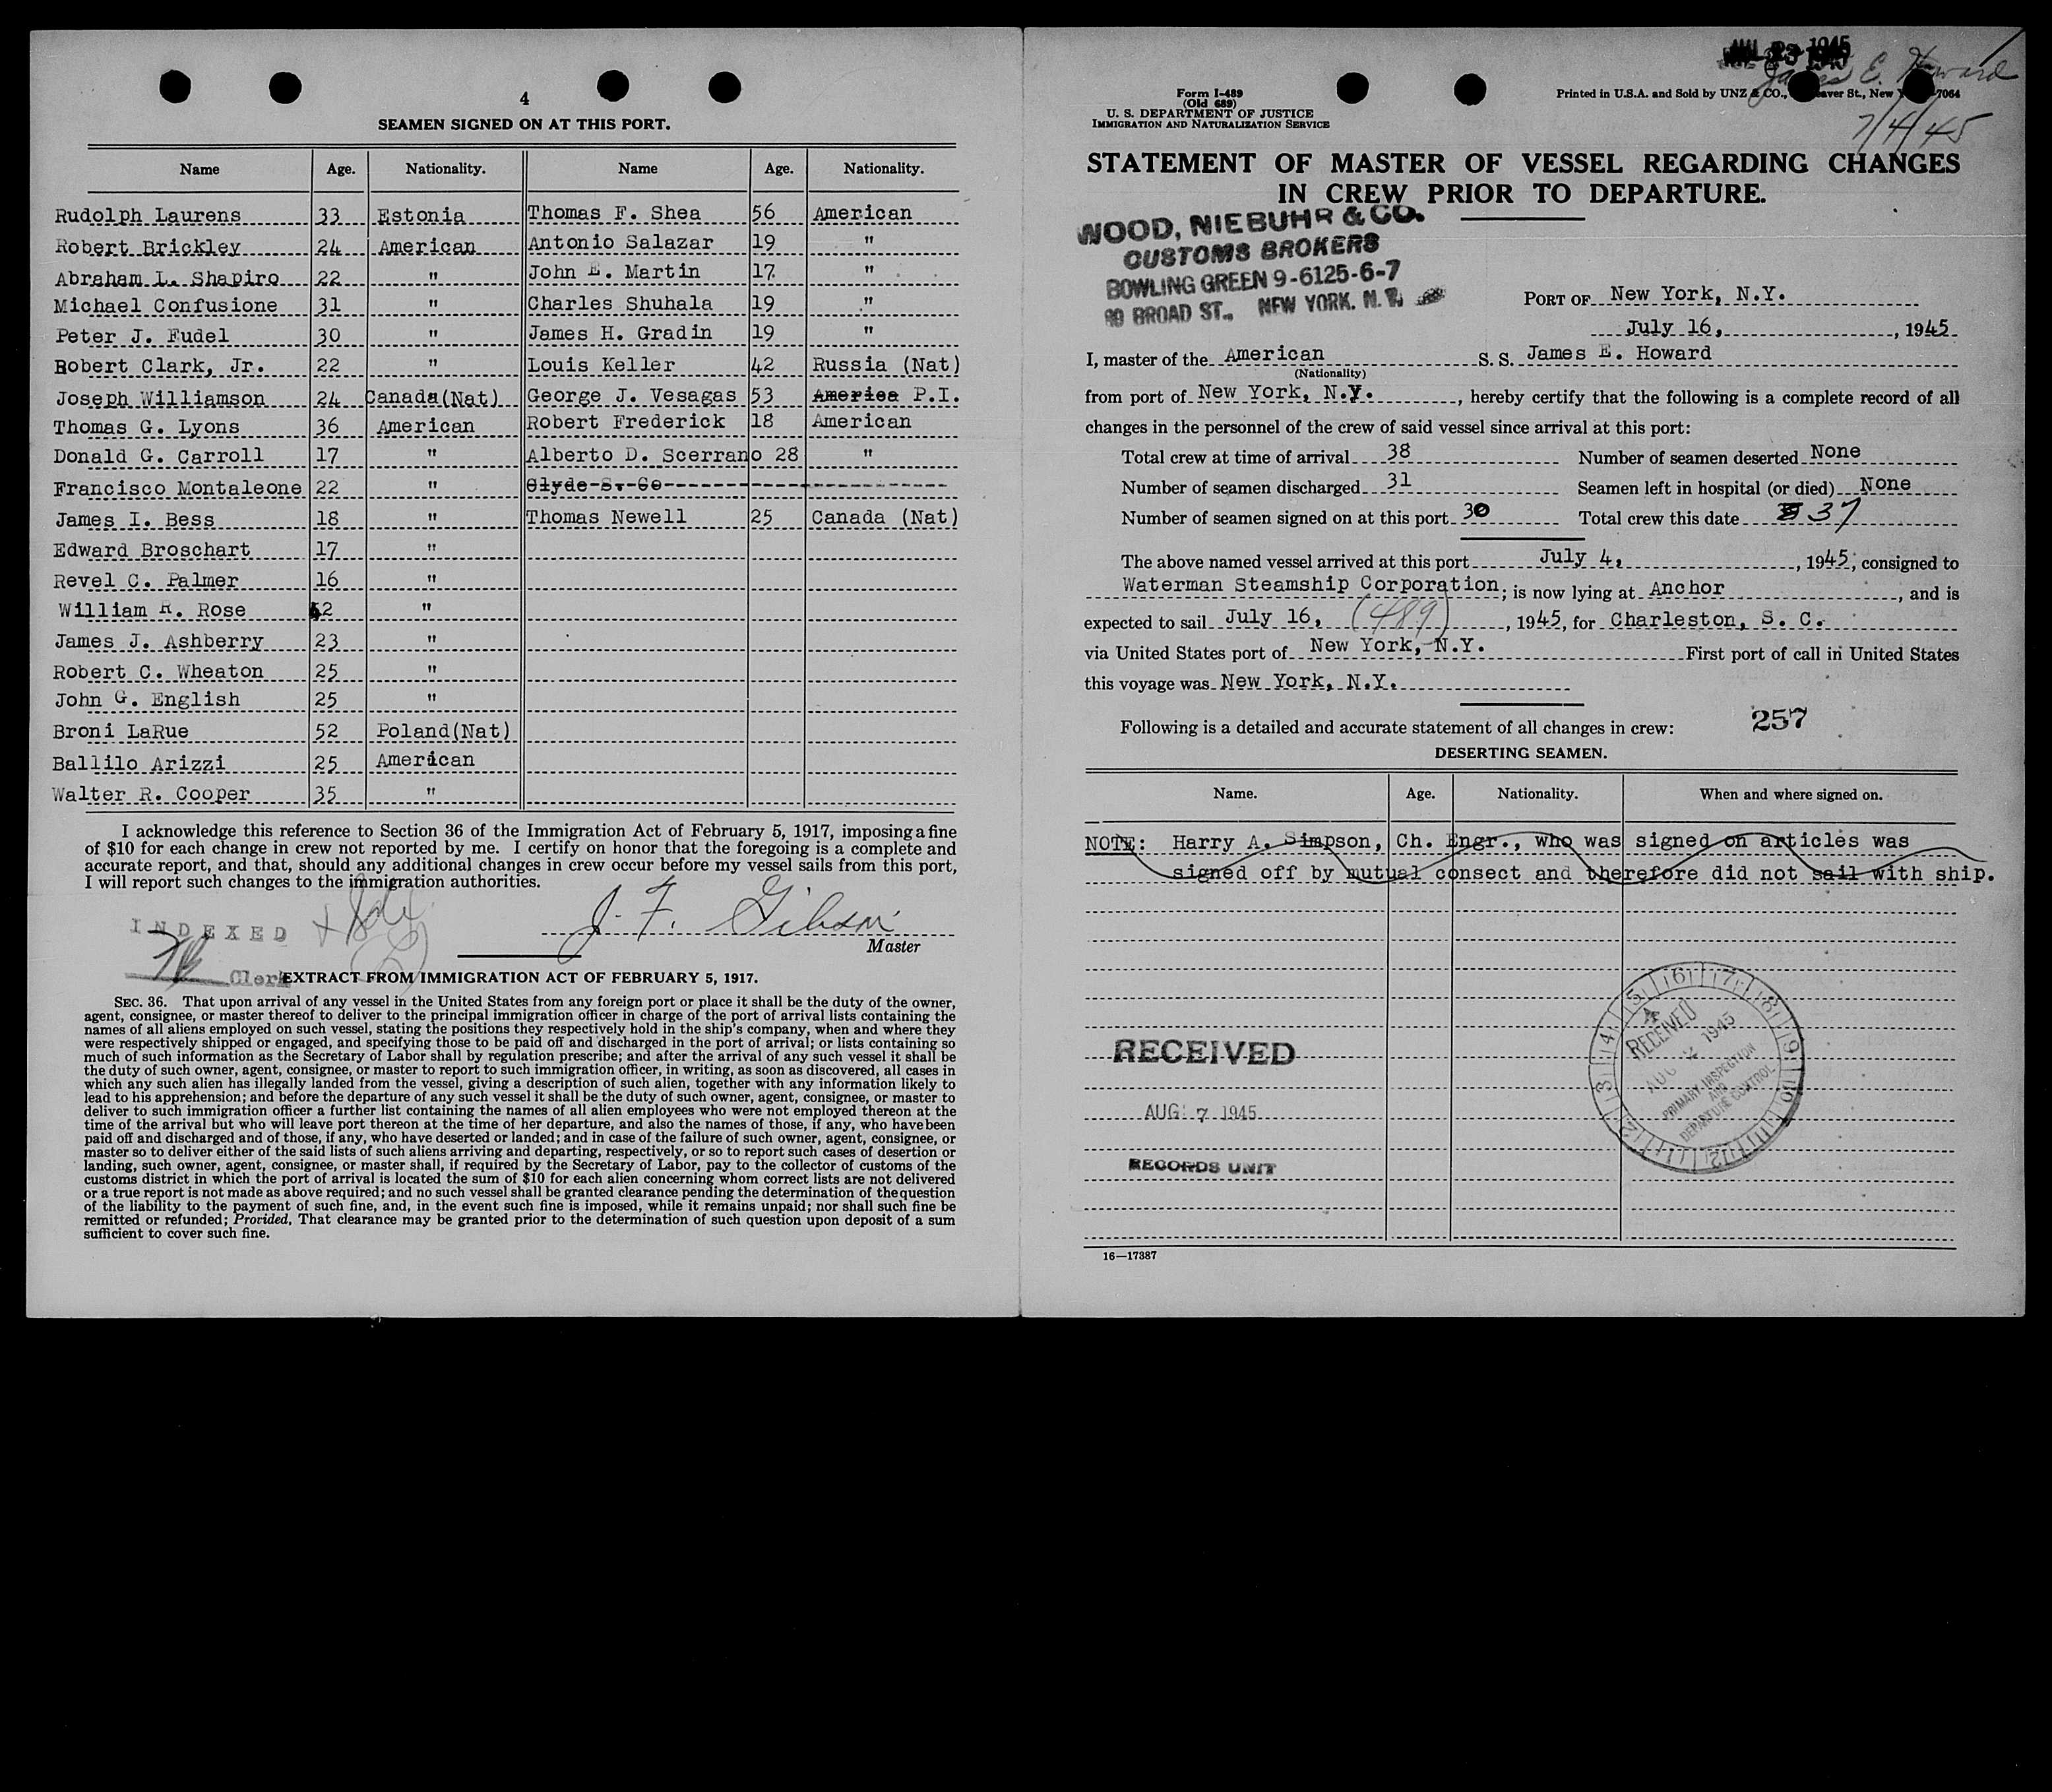 4
SEAMEN SIGNED ON AT THIS PORT.
Name Age. Nationality. Name Age. Nationality.
Rudolph Laurens 33 Estonia Thomas F. Shea 56 American
Robert Brickley 24 American Antonio Salazar 19 "
Abraham L. Shapiro 22 " John E. Martin 17 "
Michael Confusione 31 " Charles Shuhala 19 "
Peter J. Fudel 30 " James H. Gradin 19 "
Robert Clark, Jr. 22 " Louis Keller 42 Russia (Nat)
Joseph Williamson 24 Canada(Nat) George J. Vesagas 53 America P.I.
Thomas G. Lyons 36 American Robert Frederick 18 American
Donald G. Carroll 17 " Alberto D. Scerrano 28 "
Francisco Montaleone 22 " Clyde S. Co
James I. Bess 18 " Thomas Newell 25 Canada (Nat)
Edward Broschart 17 "
Revel C. Palmer 16 "
William R. Rose 2 "
James J. Ashberry 23 "
Robert C. Wheaton 25 "
John G. English 25 "
Broni LaRue 52 Poland(Nat)
Ballilo Arizzi 25 American
Walter R. Cooper 35 "
I acknowledge this reference to Section 36 of the Immigration Act of February 5, 1917, imposing a fine
of $10 for each change in crew not reported by me. I certify on honor that the foregoing is a complete and
accurate report, and that, should any additional changes in crew occur before my vessel sails from this port,
I will report such changes to the immigration authorities.
INDEXED
J. F. Gibson
Master
Clerk
EXTRACT FROM IMMIGRATION ACT OF FEBRUARY 5, 1917.
SEC. 36. That upon arrival of any vessel in the United States from any foreign port or place it shall be the duty of the owner,
agent, consignee, or master thereof to deliver to the principal immigration officer in charge of the port of arrival lists containing the
names of all aliens employed on such vessel, stating the positions they respectively hold in the ship's company, when and where they
were respectively shipped or engaged, and specifying those to be paid off and discharged in the port of arrival; or lists containing so
much of such information as the Secretary of Labor shall by regulation prescribe; and after the arrival of any such vessel it shall be
the duty of such owner, agent, consignee, or master to report to such immigration officer, in writing, as soon as discovered, all cases in
which any such alien has illegally landed from the vessel, giving a description of such alien, together with any information likely to
lead to his apprehension; and before the departure of any such vessel it shall be the duty of such owner, agent, consignee, or master to
deliver to such immigration officer a further list containing the names of all alien employees who were not employed thereon at the
time of the arrival but who will leave port thereon at the time of her departure, and also the names of those, if any, who have been
paid off and discharged and of those, if any, who have deserted or landed; and in case of the failure of such owner, agent, consignee, or
master so to deliver either of the said lists of such aliens arriving and departing, respectively, or so to report such cases of desertion or
landing, such owner, agent, consignee, or master shall, if required by the Secretary of Labor, pay to the collector of customs of the
customs district in which the port of arrival is located the sum of $10 for each alien concerning whom correct lists are not delivered
or a true report is not made as above required; and no such vessel shall be granted clearance pending the determination of the question
of the liability to the payment of such fine, and, in the event such fine is imposed, while it remains unpaid; nor shall such fine be
remitted or refunded; Provided, That clearance may be granted prior to the determination of such question upon deposit of a sum
sufficient to cover such fine.
1945
James E. Howard
7/4/45
Form I-489
(Old 689)
U. S. DEPARTMENT OF JUSTICE
IMMIGRATION AND NATURALIZATION SERVICE
Printed in U.S.A. and Sold by UNZ & CO., St., New 7064
STATEMENT OF MASTER OF VESSEL REGARDING CHANGES
IN CREW PRIOR TO DEPARTURE.
WOOD, NIEBUHR & CO.
CUSTOMS BROKERS
BOWLING GREEN 9-6125-6-7
BROAD ST., NEW YORK, N. Y.
PORT OF New York, N.Y.
July 16, , 1945
I, master of the American S. S. James E. Howard
(Nationality)
from port of New York, N.Y. , hereby certify that the following is a complete record of all
changes in the personnel of the crew of said vessel since arrival at this port:
Total crew at time of arrival 38 Number of seamen deserted None
Number of seamen discharged 31 Seamen left in hospital (or died) None
Number of seamen signed on at this port 30 Total crew this date 37
The above named vessel arrived at this port July 4, , 1945, consigned to
Waterman Steamship Corporation; is now lying at Anchor , and is
expected to sail July 16, (489) , 1945, for Charleston, S. C.
via United States port of New York, N.Y. First port of call in United States
this voyage was New York, N.Y.
Following is a detailed and accurate statement of all changes in crew: 257
DESERTING SEAMEN.
Name. Age. Nationality. When and where signed on.
NOTE: Harry A. Simpson, Ch. Engr., who was signed on articles was
signed off by mutual consect and therefore did not sail with ship.
RECEIVED
AUG 7 1945
RECORDS UNIT
RECEIVED
AUG 1945
PRIMARY INSPECTION
AND
DEPARTURE CONTROL
16—17387